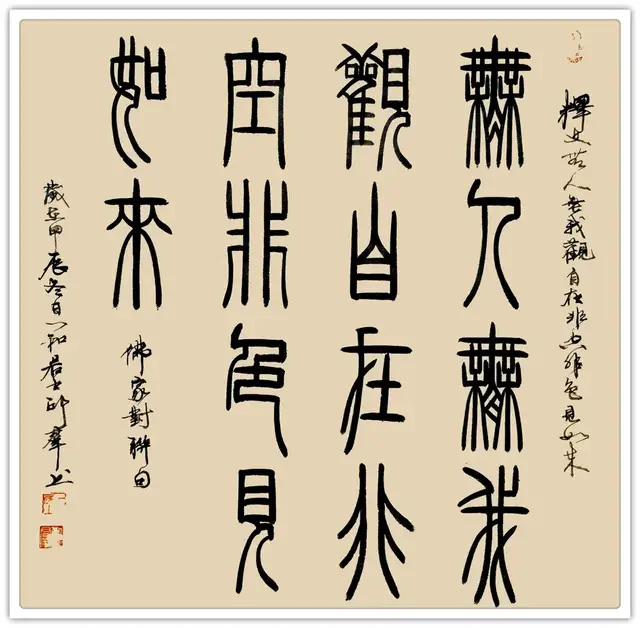 釋文無人無我觀自在非空非色見如来
無人無我
觀自在非
空非色見
如來
佛家對聯句
歲在甲辰冬日一和居士邱羣书